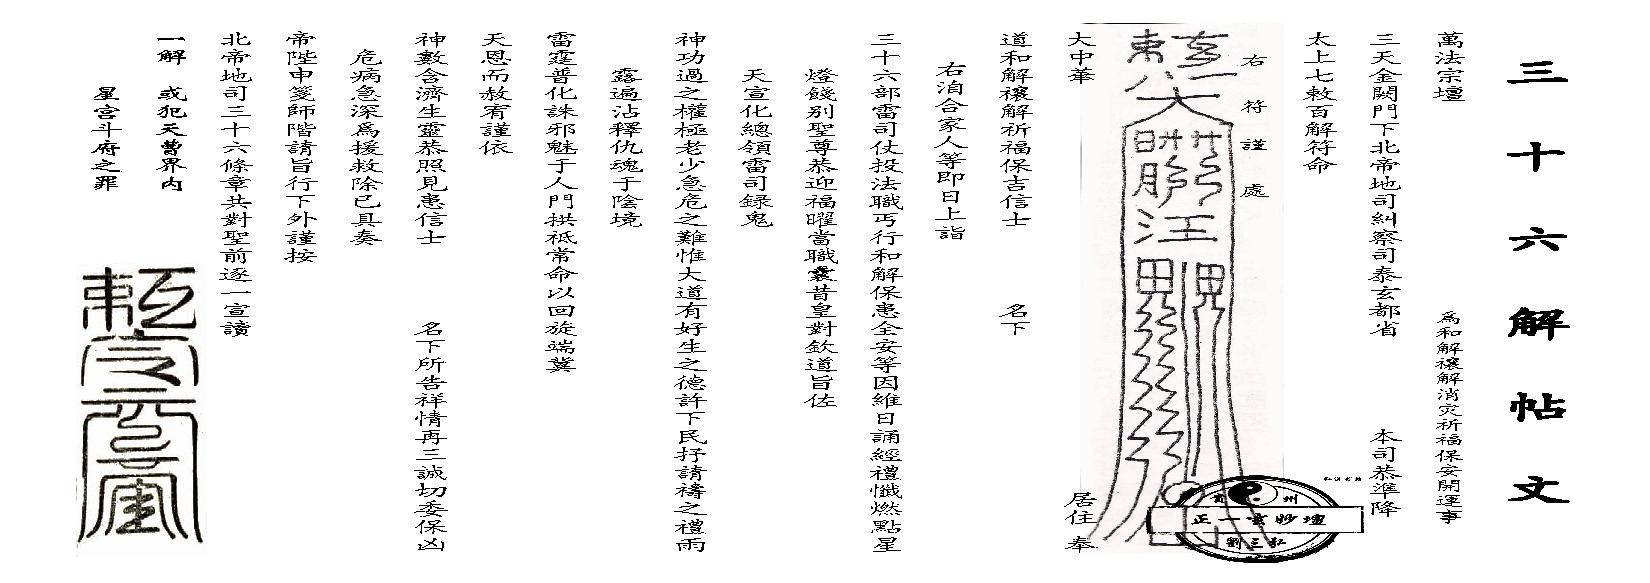 三十六解帖文
萬法宗壇 為和解禳解消灾祈福保安開運事
三天金闕門下北帝地司糾察司泰玄都省 本司恭準降
太上七敕百解符命
右符謹處
大中華 居住 奉
道和解禳解祈福保吉信士 名下
右洎合家人等即日上詣
三十六部雷司仗投法職丐行和解保患全安等因維日誦經禮懺燃點星
燈餞别聖尊恭迎福曜當職囊昔皇對欽道旨佐
天宣化總領雷司録鬼
神功過之權極老少急危之難惟大道有好生之德許下民抒請禱之禮雨
露遍沾釋仇魂于陰境
雷霆普化誅邪魅于人門拱祗常命以回旋端冀
天恩而赦宥謹依
神數含濟生靈恭照見患信士 名下所告祥情再三誠切委保凶
危病急深為援救除已具奏
帝陛申箋師階請旨行下外謹按
北帝地司三十六條章共對聖前逐一宣讀
一解 或犯天曹界内
星宫斗府之罪
正一玄妙壇
州